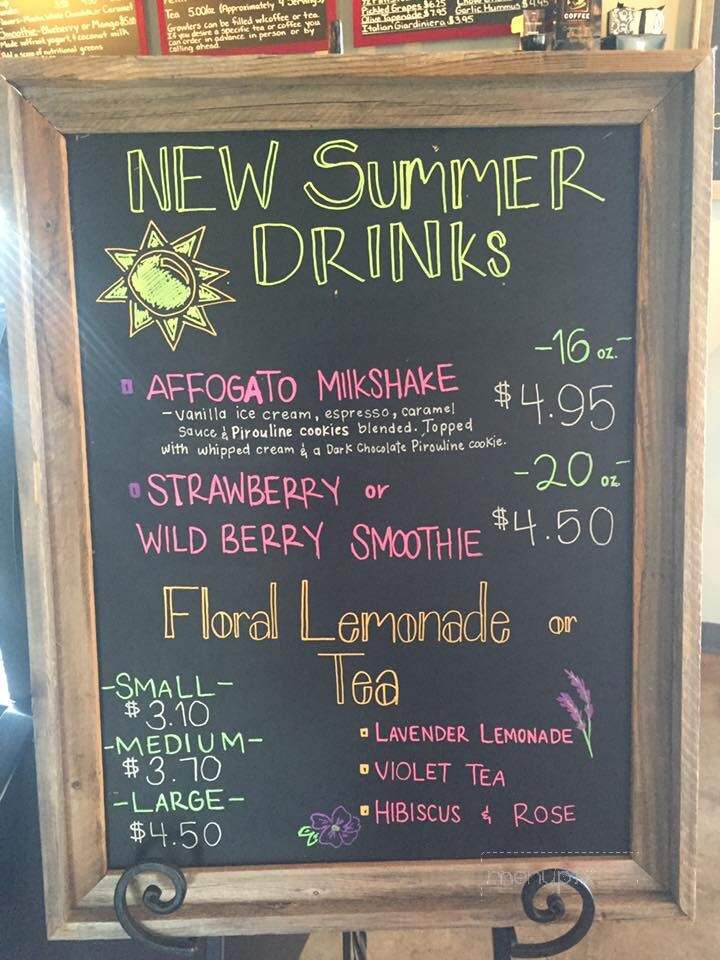 Tea 5.00ke (Approximately 4 Servings)
Growlers can be filled w/coffee or tea.
If you desire a specific tea or coffee you
can order in advance in person or by
calling ahead.
Pickled Grapes $6.25
Olive Tapenade $7.95
Italian Giardiniera $3.95
Garlic Hummus $4.95
COFFEE
NEW SUMMER
DRINKS
-16 oz.-
AFFOGATO MILKSHAKE
$4.95
-vanilla ice cream, espresso, caramel
sauce & Pirouline cookies blended. Topped
with whipped cream & a Dark Chocolate Pirouline cookie.
-20 oz-
STRAWBERRY or
WILD BERRY SMOOTHIE
$4.50
Floral Lemonade or
Tea
-SMALL-
$3.10
-MEDIUM-
$3.70
-LARGE-
$4.50
LAVENDER LEMONADE
VIOLET TEA
HIBISCUS & ROSE